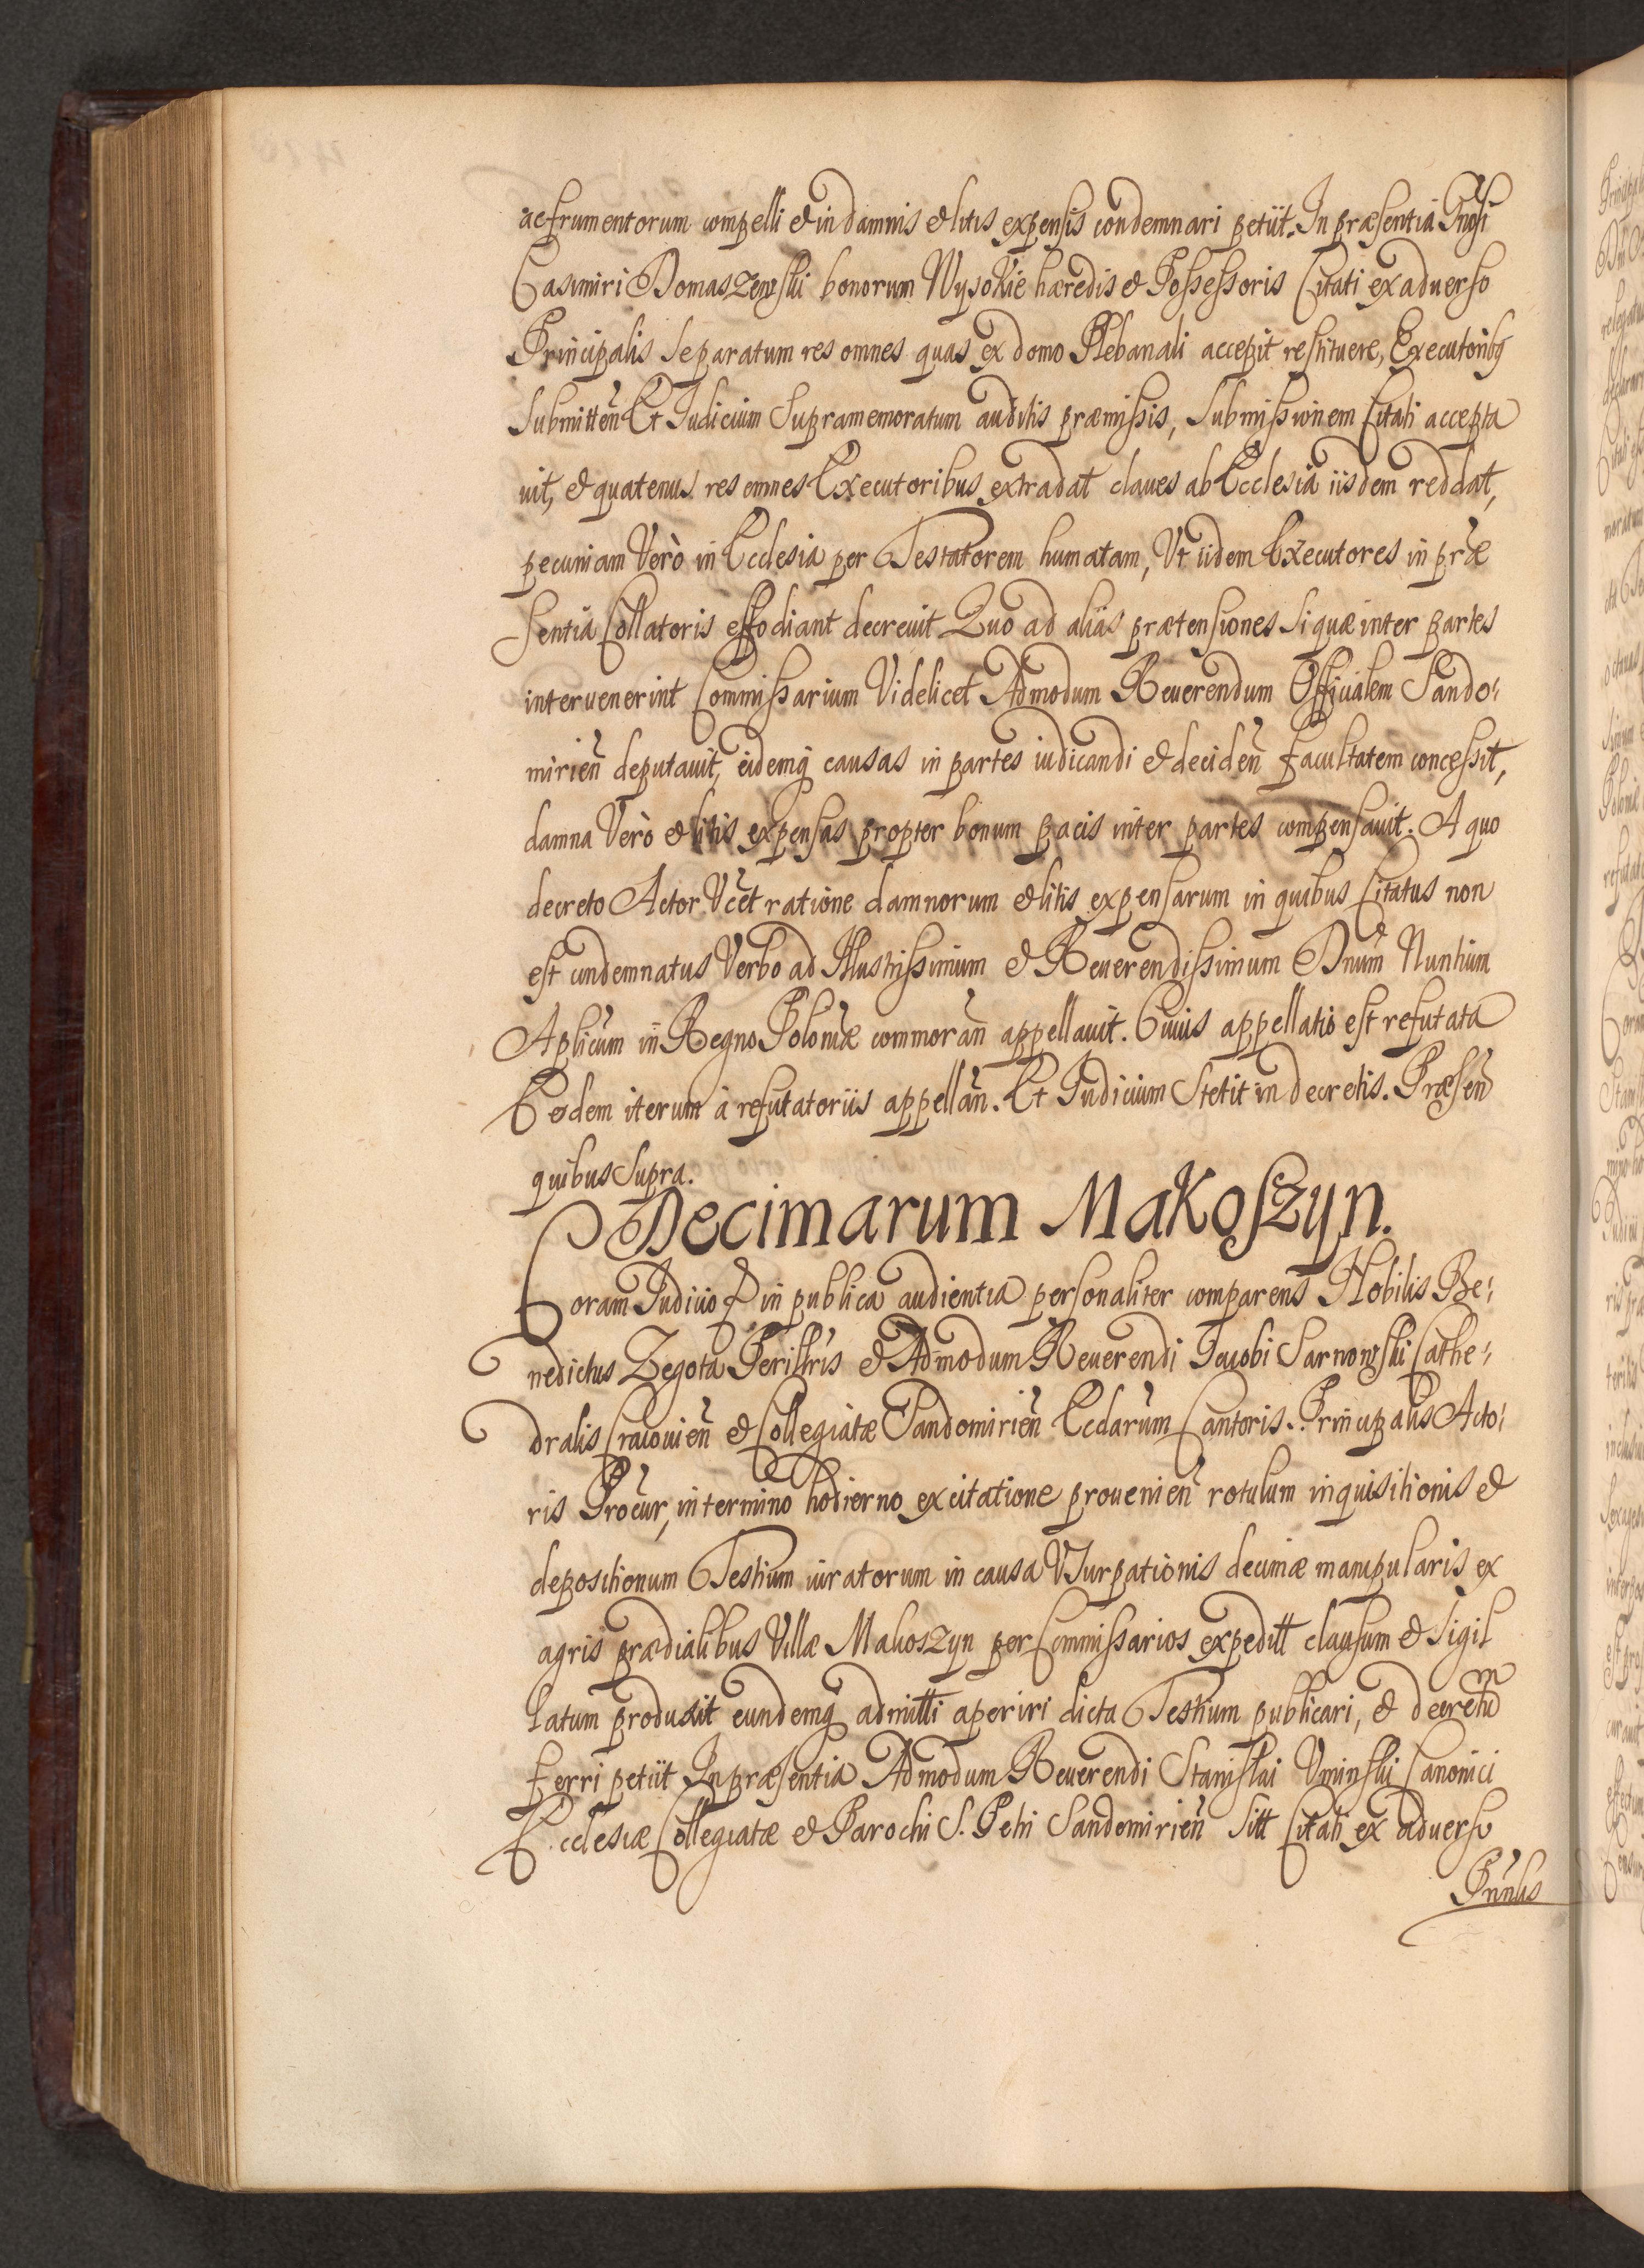 ac frumentorum compelli & in damnis & litis expensis condemnari petiit. In præsentia Gnosi
Casimiri Domaszewski bonorum Wysokie hæredis & Possessoris Citati ex aduerso
Principalis separatum res omnes quas ex domo Plebanali accepit restituere, Executoribq
submitten̄ Et Iudicium supramemoratum auditis præmissis, submissionem Citati accepta
uit, & quatenus res omnes Executoribus extradat claues ab Ecclesia iisdem reddat,
pecuniam Verò in Ecclesia per Testatorem humatam, Vt iidem Executores in præ
sentia Collatoris effodiant decreuit Quo ad alias prætensiones si quæ inter partes
interuenerint Commissarium Videlicet Admodum Reuerendum Officialem Sando:
mirien̄ deputauit, eidemq causas in partes iudicandi & deciden̄ facultatem concessit,
damna Verò & litis expensas propter bonum pacis inter partes compensauit. A quo
decreto Actor Vcet ratione damnorum & litis expensarum in quibus Citatus non
est condemnatus Verbo ad Illustrissimum & Reuerendissimum Dnum Nuntium
Aplicum in Regno Poloniæ commoran̄ appellauit. Cuius appellatio est refutata
Eodem iterum à refutatoriis appellan̄. Et Iudicium stetit in decretis. Præsen̄
quibus supra.
Decimarum Makoszyn.
Coram Iudicio & in publica audientia personaliter comparens Nobilis Be:
nedictus Zegota Perillris & Admodum Reuerendi Iacobi Sarnowski Cathe:
dralis Cracouien̄ & Collegiatæ Sandomirien̄ Ecclarum Cantoris. Principalis Acto:
ris Procur, in termino hodierno ex citatione prouenien̄ rotulum inquisitionis &
depositionum Testium iuratorum in causa Vsurpationis decimæ manipularis ex
agris prædialibus Villæ Makoszyn per Commissarios expeditt clausum & sigil
latum produxit eundemq admitti aperiri dicta Testium publicari, & decretum
ferri petiit In præsentia Admodum Reuerendi Stanislai Vminski Canonici
Ecclesiæ Collegiatæ & Parochi S. Petri Sandomirien̄ sitt Citati ex aduerso
Prinlis